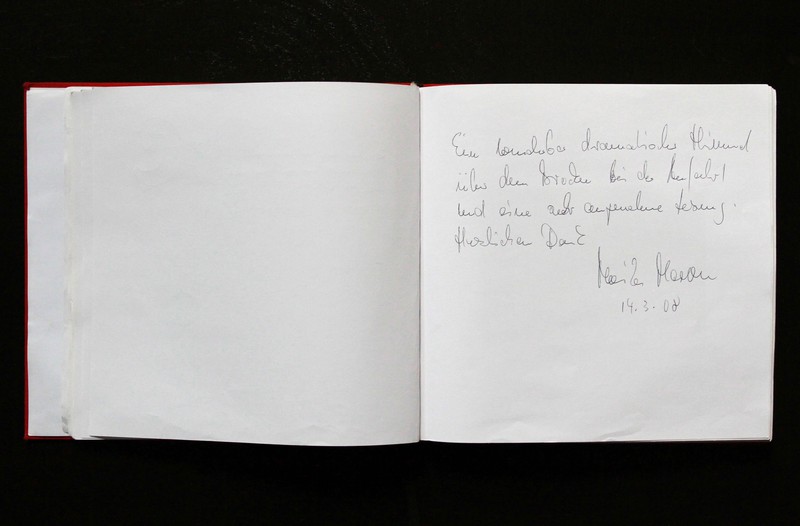 Ein wunderbar dramatischer Himmel
über dem Brocken bei der Anfahrt
und eine sehr angenehme Lesung.
Herzlichen Dank
Monika Maron
14.3.08